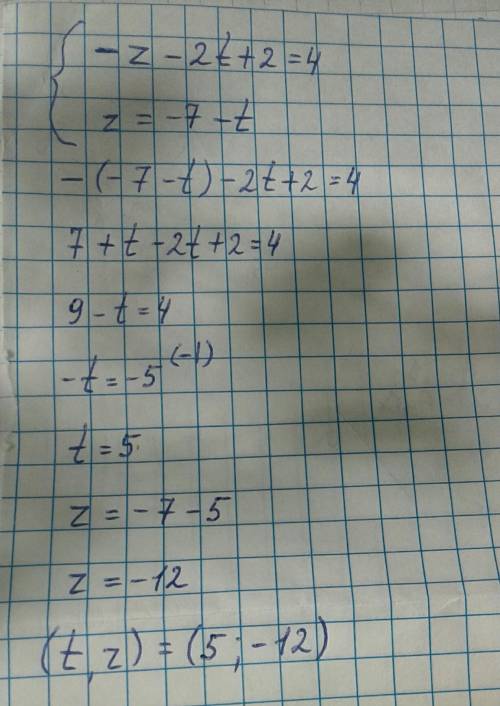 { -z - 2t + 2 = 4
z = -7 - t
-(-7 - t) - 2t + 2 = 4
7 + t - 2t + 2 = 4
9 - t = 4
-t = -5 (-1)
t = 5
z = -7 - 5
z = -12
(t, z) = (5; -12)